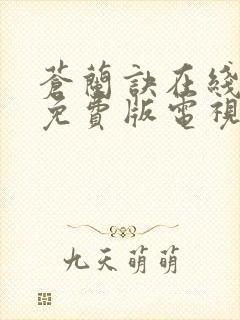 蒼蘭訣在綫
免費版電視
九天萌萌